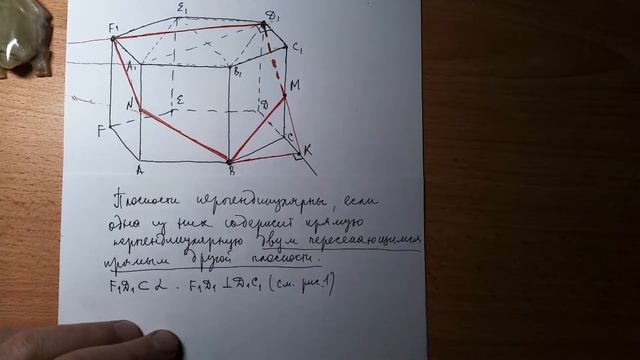 E₁
F₁
D₁
C₁
A₁
B₁
M
N
E
D
F
C
K
A
B
Плоскости перпендикулярны, если
одна из них содержит прямую
перпендикулярную двум пересекающимся
прямым другой плоскости.
F₁D₁ ⊂ α . F₁D₁ ⊥ D₁C₁ (см. рис. 1)